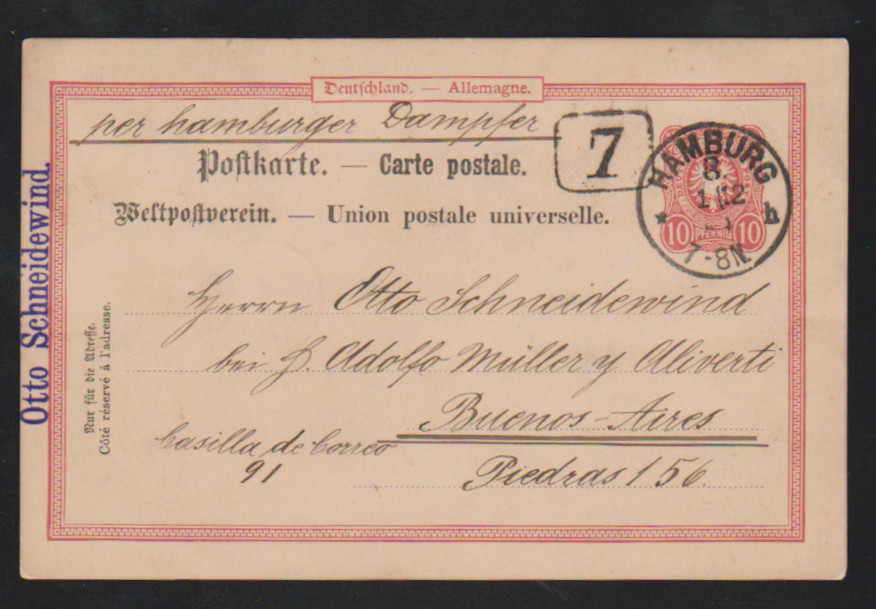 Deutschland. — Allemagne.
per hamburger Dampfer
7
Postkarte. — Carte postale.
Weltpostverein. — Union postale universelle.
HAMBURG
8.
1
h
7-8N.
10 PFENNIG 10
Herrn Otto Schneidewind
bei D. Adolfo Müller y Aliverti
Buenos-Aires
Casilla de Correo
91
Piedras 156.
Nur für die Adresse.
Côté réservé à l'adresse.
Otto Schneidewind.